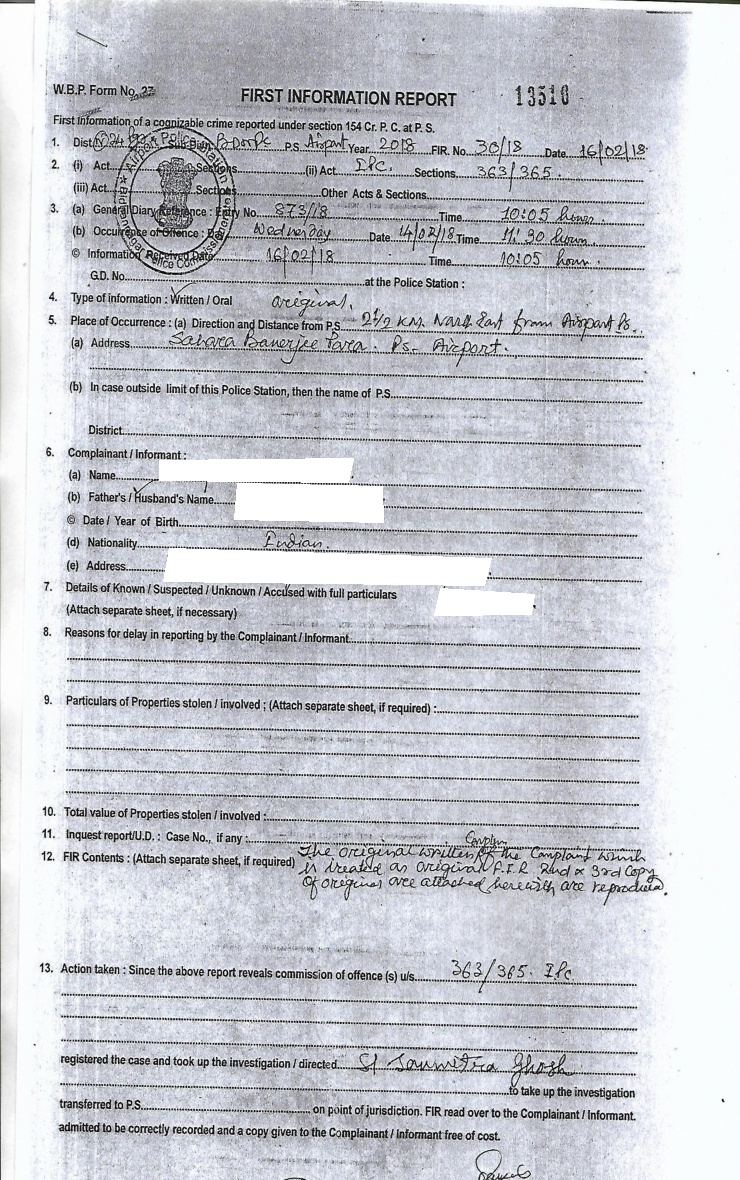 W.B.P. Form No. 27
FIRST INFORMATION REPORT
13510
First Information of a cognizable crime reported under section 154 Cr. P. C. at P. S.
1. Dist. P.S. Airport Year 2018 FIR. No. 30/18 Date 16/02/18
2. (i) Act Sections (ii) Act IPC. Sections 363/365.
(iii) Act Sections Other Acts & Sections
3. (a) General Diary Reference : Entry No. 873/18 Time 10:05 hours.
(b) Occurrence of Offence : Day Wednesday Date 14/02/18. Time 11:30 hours.
© Information Received Date 16/02/18 Time 10:05 hour.
G.D. No. at the Police Station :
4. Type of information : Written / Oral original.
5. Place of Occurrence : (a) Direction and Distance from P.S. 2 1/2 KM. North East from Airport Ps.
(a) Address Sahara Banerjee Para. Ps. Airport.
(b) In case outside limit of this Police Station, then the name of P.S.
District
6. Complainant / Informant :
(a) Name
(b) Father's / Husband's Name
© Date / Year of Birth
(d) Nationality Indian.
(e) Address
7. Details of Known / Suspected / Unknown / Accused with full particulars
(Attach separate sheet, if necessary)
8. Reasons for delay in reporting by the Complainant / Informant
9. Particulars of Properties stolen / involved ; (Attach separate sheet, if required) :
10. Total value of Properties stolen / involved :
11. Inquest report/U.D. : Case No., if any :
12. FIR Contents : (Attach separate sheet, if required) The original written of the Complaint which
is treated as original F.I.R 2nd & 3rd Copy
of original are attached herewith are
13. Action taken : Since the above report reveals commission of offence (s) u/s. 363/365. IPC
registered the case and took up the investigation / directed SI Soumitra Ghosh
to take up the investigation
transferred to P.S. on point of jurisdiction. FIR read over to the Complainant / Informant.
admitted to be correctly recorded and a copy given to the Complainant / Informant free of cost.